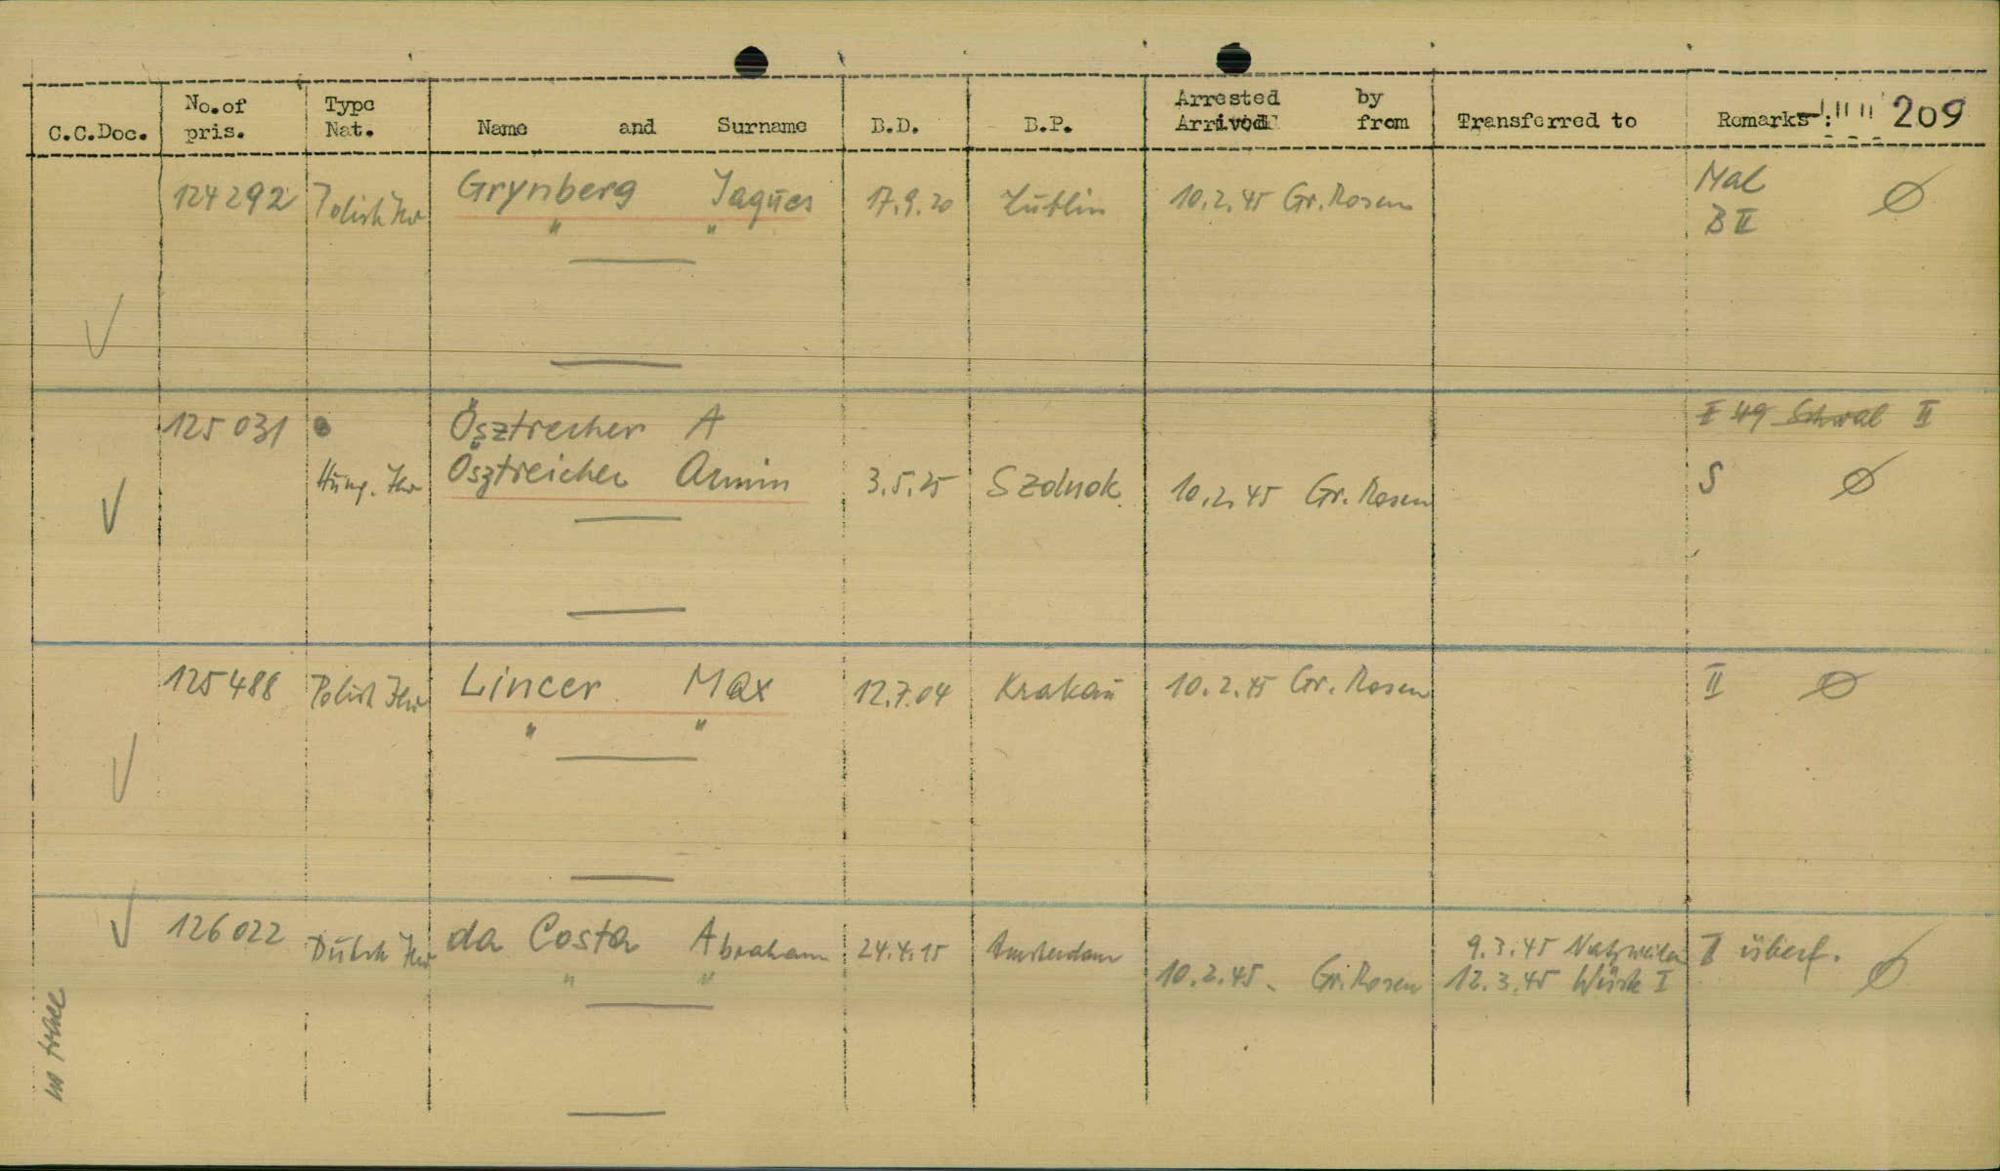 C.C.Doc. No.of pris. Type Nat. Name and Surname B.D. B.P. Arrested by Arrived from Transferred to Remarks : 209
124292 Polish Jew Grynberg Jaques 17.9.20 Lublin 10.2.45 Gr. Rosen Mal
" " B II
125031 Ösztrecher A I 49 Schwal II
Hung. Jew Ösztreicher Armin 3.5.25 Szolnok. 10.2.45 Gr. Rosen S
125488 Polish Jew Lincer Max 12.7.04 Krakau 10.2.45 Gr. Rosen II
" "
126022 Dutch Jew da Costa Abraham 24.4.15 Amsterdam 10.2.45. Gr. Rosen 9.3.45 Natzweiler II überf.
" " 12.3.45 I
no trace